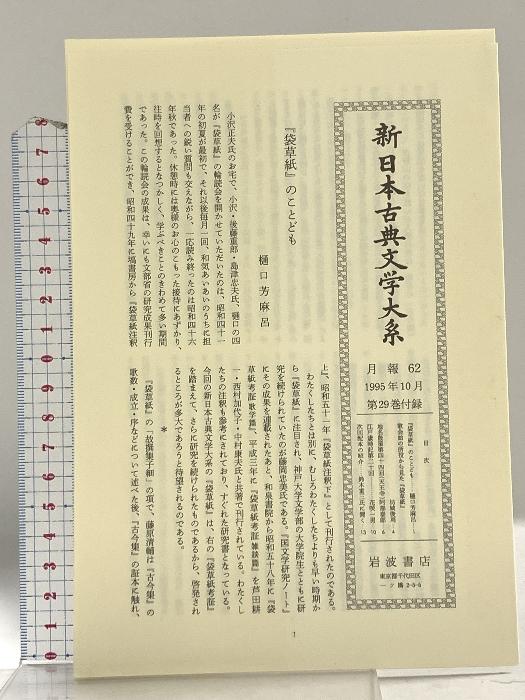 新日本古典文学大系
月報 62
1995年10月
第29巻付録
目次
『袋草紙』のことども……樋口芳麻呂…1
岩波書店
東京都千代田区
一ツ橋2-5-5
『袋草紙』のことども
樋口芳麻呂
小沢正夫氏のお宅で、小沢・後藤重郎・島津忠夫氏、樋口の四
名が『袋草紙』の輪読会を開かせていただいたのは、昭和四十一
年の初夏が最初で、それ以後毎月一回、和気あいあいのうちに担
当者への鋭い質問も交えながら、一応読み終ったのは昭和四十六
年秋であった。休憩時には奥様のお心のこもった接待にあずかり、
注時を回想するとなつかしく、学ぶべきことのきわめて多い期間
であった。この輪読会の成果は、幸いにも文部省の研究成果刊行
費を受けることができ、昭和四十九年に塙書房から『袋草紙注釈
上』、昭和五十一年『袋草紙注釈下』として刊行されたのである。
わたくしたちとは別に、むしろわたくしたちよりも早い時期か
ら『袋草紙』に注目され、神戸大学文学部の大学院生とともに研
究を続けられていたのが藤岡忠美氏である。『国文学研究ノート』
にその成果を連載されたあと、和泉書院から昭和五十八年に『袋
草紙考証歌学篇』、平成三年に『袋草紙考証雑談篇』を芦田耕
一・西村加代子・中村康夫氏と共著で刊行されている。わたくし
たちの注釈も参考にされており、すぐれた研究書となっている。
今回の新日本古典文学大系の『袋草紙』は、右の『袋草紙考証』
を踏まえて、さらに研究を続けられたものであるから、啓発され
るところが多大であろうと待望されるのである。
*
『袋草紙』の「故撰集子細」の項で、藤原清輔は『古今集』の
歌数・成立・序などについて述べた後、『古今集』の証本に触れ、
1